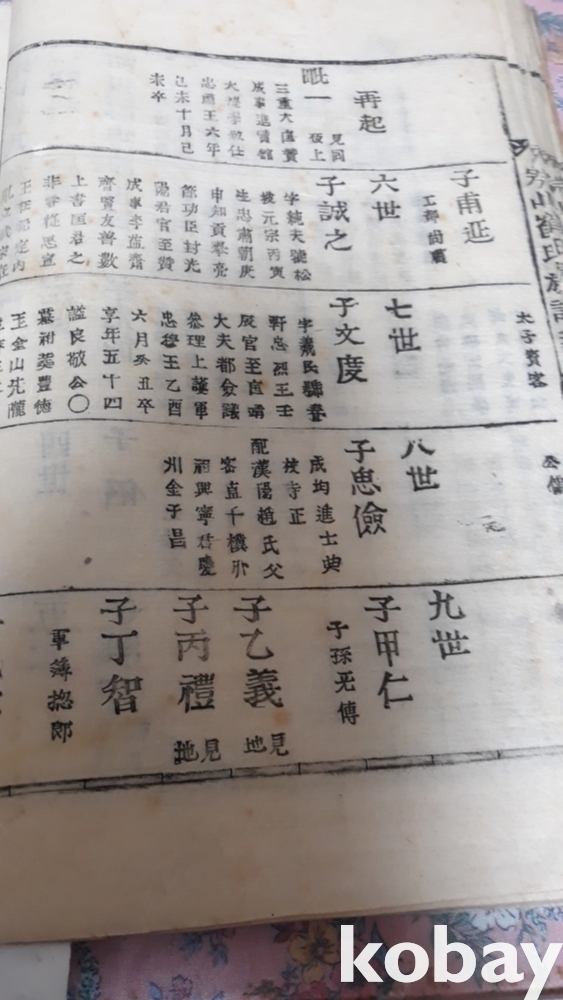 再起
一
見図
三重大匡賛
成事進賢館
大提学致仕
忠肅王六年
己未十月己
未卒
子甫延
工部尙書
六世
子誠之
字純夫號松
坡元宗丙寅
生忠肅朝庚
申知貢擧亮
節功臣封光
陽君官至賛
成事李益齋
齊賢友善數
上書匡君之
七世
子文度
字羲民號春
軒忠烈王壬
辰官至匡靖
大夫都僉議
參理上護軍
忠穆王乙酉
六月癸丑卒
享年五十四
諡良敬公〇
墓祔葬豊德
太子賓客
八世
子思儉
成均進士典
技寺正
配漢陽趙氏父
密直千
祠興寧君慶
州金子昌
九世
子甲仁
子孫无傳
子乙義
見地
子丙禮
見地
子丁智
軍簿摠郎
kobay